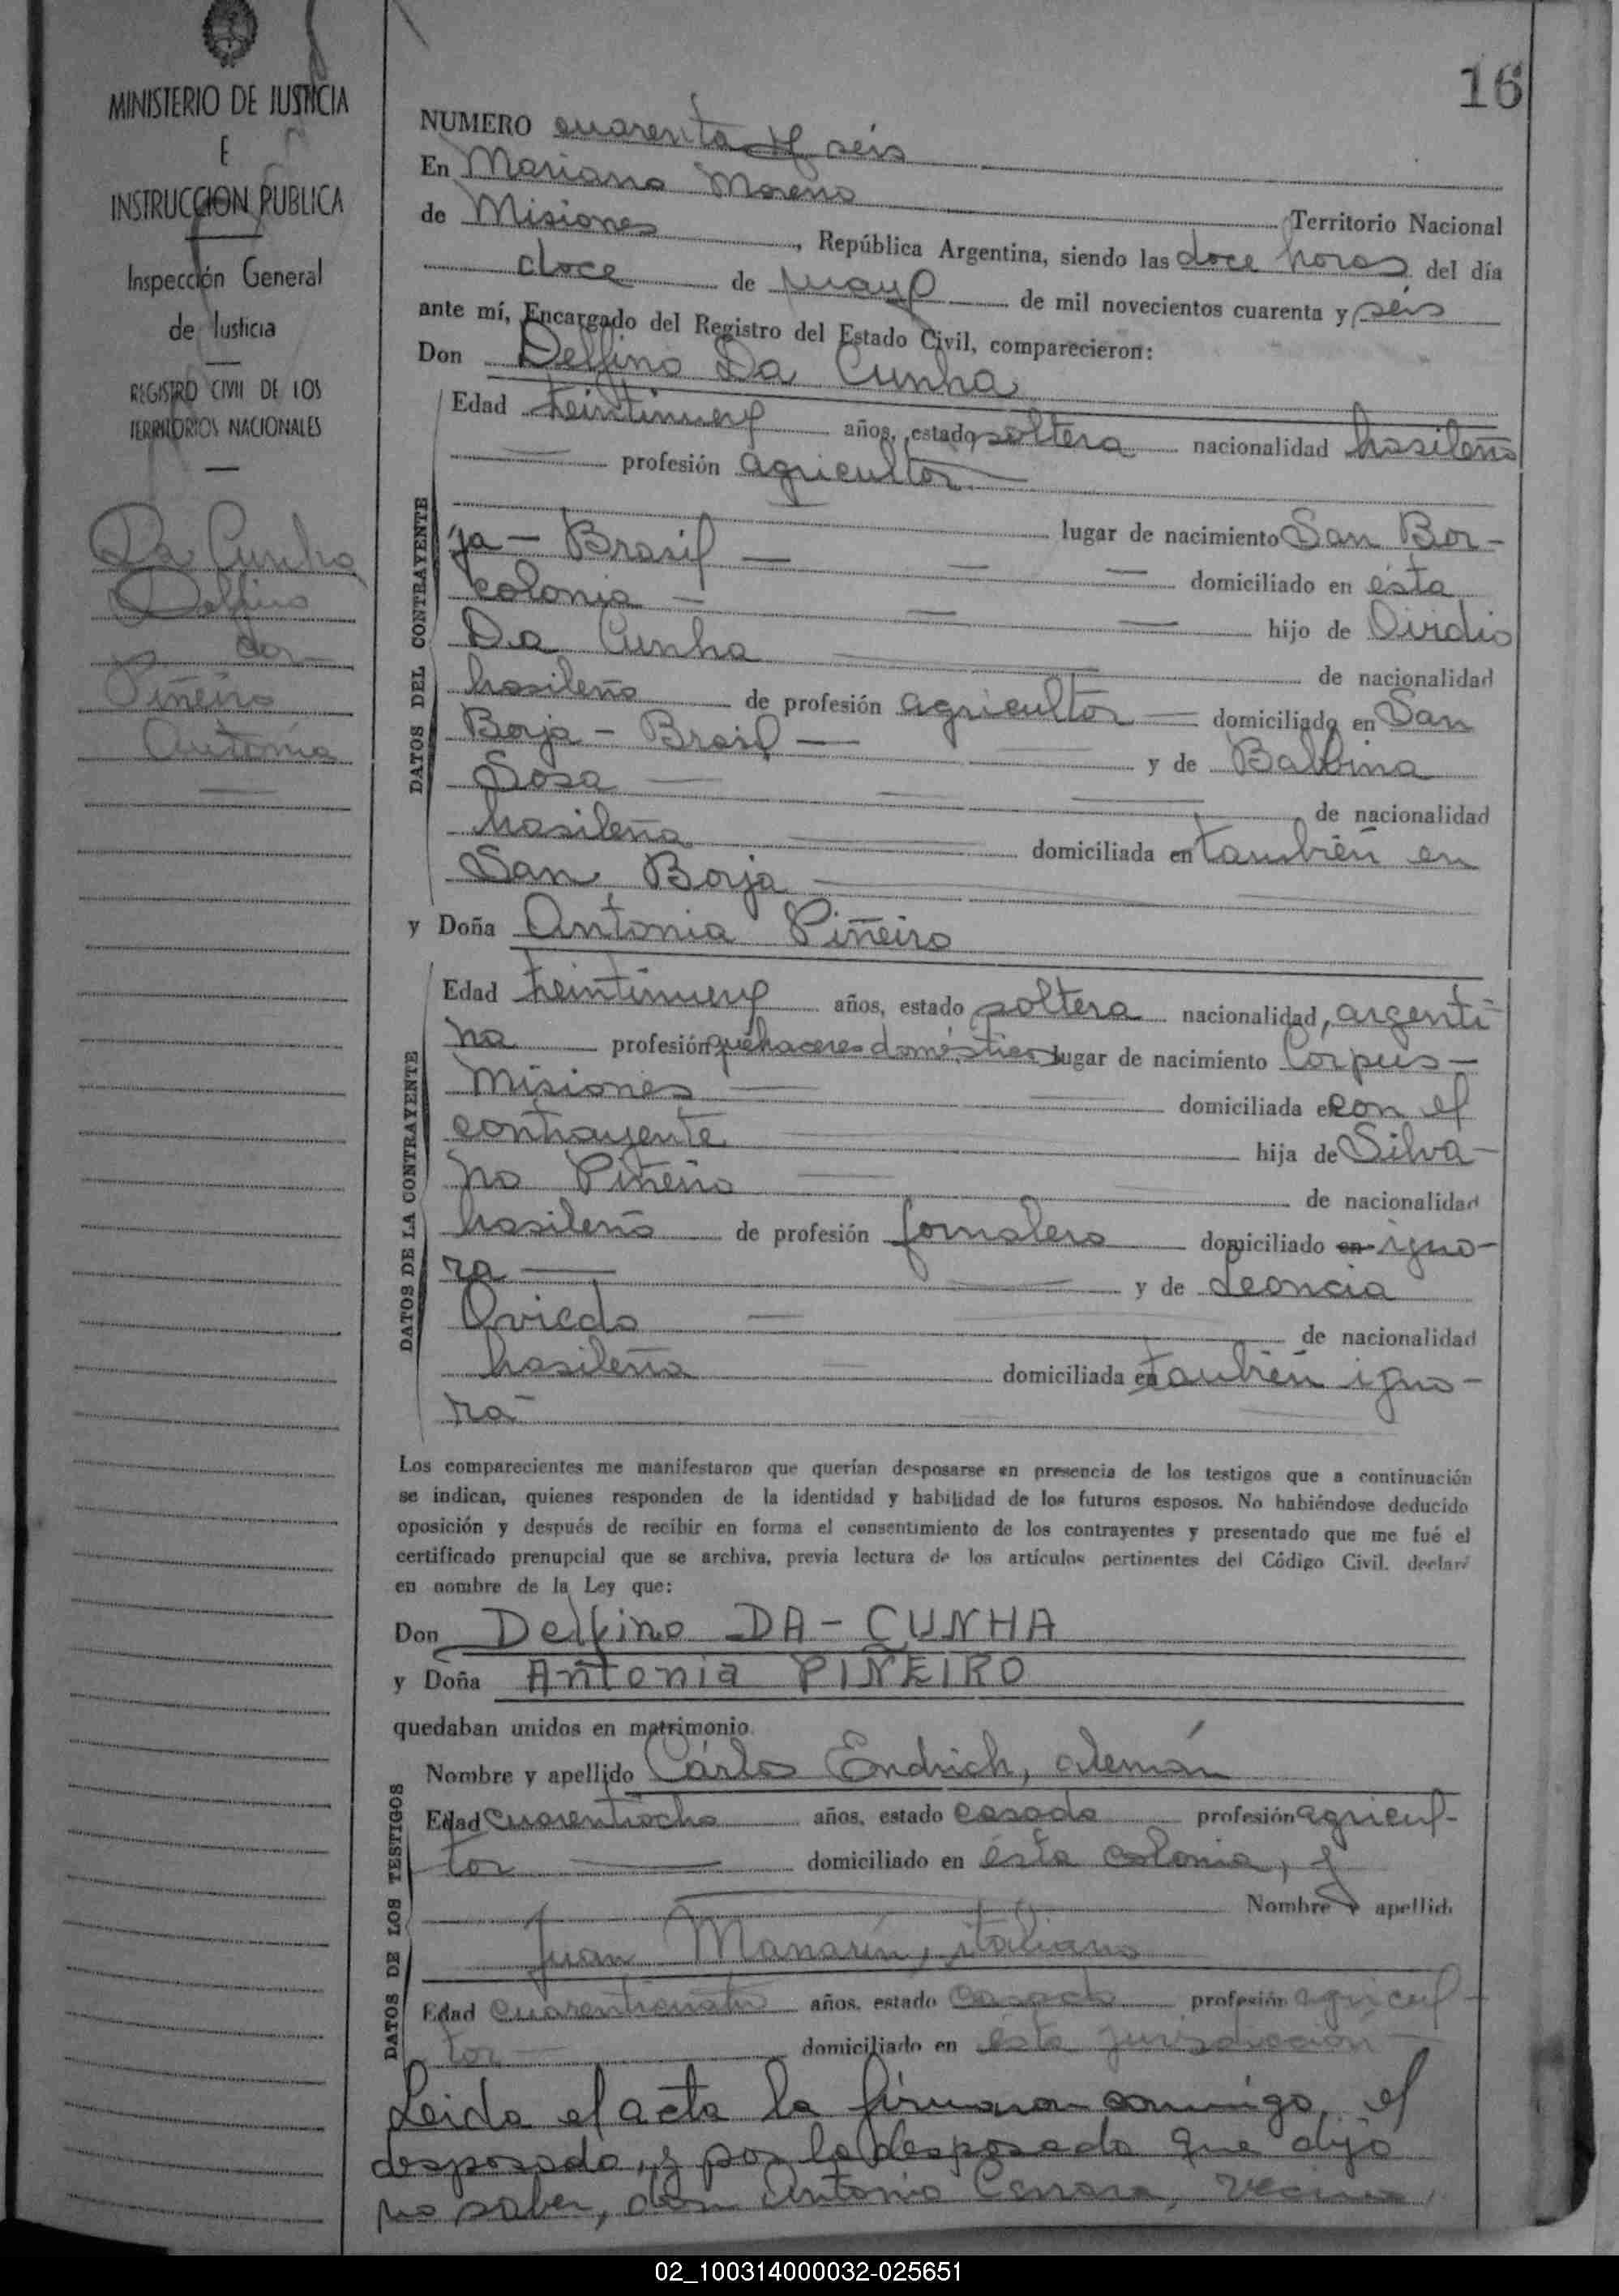 MINISTERIO DE JUSTICIA
E
INSTRUCCION PUBLICA
Inspección General
de Justicia
REGISTRO CIVIL DE LOS
TERRITORIOS NACIONALES
Da Cunha
Delfino
con
Piñeiro
Antonia
16
NUMERO cuarenta y séis
En Mariano Moreno Territorio Nacional
de Misiones, República Argentina, siendo las doce horas del día
doce de mayo de mil novecientos cuarenta y séis
ante mí, Encargado del Registro del Estado Civil, comparecieron:
Don Delfino Da Cunha
Edad veintinueve años, estado soltero nacionalidad brasileño
profesión agricultor
DATOS DEL CONTRAYENTE
lugar de nacimiento San Bor-
ja - Brasil - domiciliado en ésta
colonia - hijo de Ovidio
Da Cunha de nacionalidad
brasileño de profesión agricultor domiciliado en San
Borja - Brasil - y de Balbina
Sosa de nacionalidad
brasileña domiciliada en también en
San Borja
y Doña Antonia Piñeiro
DATOS DE LA CONTRAYENTE
Edad veintinueve años, estado soltera nacionalidad, argenti-
na profesión quehaceres domésticos lugar de nacimiento Corpus -
Misiones domiciliada en con el
contrayente hija de Silva-
no Piñeiro de nacionalidad
brasileño de profesión jornalero domiciliado en igno-
ra y de Leoncia
Oviedo de nacionalidad
brasileña domiciliada en también igno-
ra
Los comparecientes me manifestaron que querían desposarse en presencia de los testigos que a continuación
se indican, quienes responden de la identidad y habilidad de los futuros esposos. No habiéndose deducido
oposición y después de recibir en forma el consentimiento de los contrayentes y presentado que me fué el
certificado prenupcial que se archiva, previa lectura de los artículos pertinentes del Código Civil, declaré
en nombre de la Ley que:
Don Delfino DA-CUNHA
y Doña Antonia PIÑEIRO
quedaban unidos en matrimonio.
DATOS DE LOS TESTIGOS
Nombre y apellido Cárlos Endrich, alemán
Edad cuarentiocho años, estado casado profesión agricul-
tor domiciliado en ésta colonia, y
Nombre y apellido
Juan Manarin, italiano
Edad cuarenticuatro años, estado casado profesión agricul-
tor domiciliado en ésta jurisdicción
Leida el acta la firmaron conmigo, el
desposado, y por la desposada que dijo
no saber, don Antonio vecino,
02_100314000032-025651